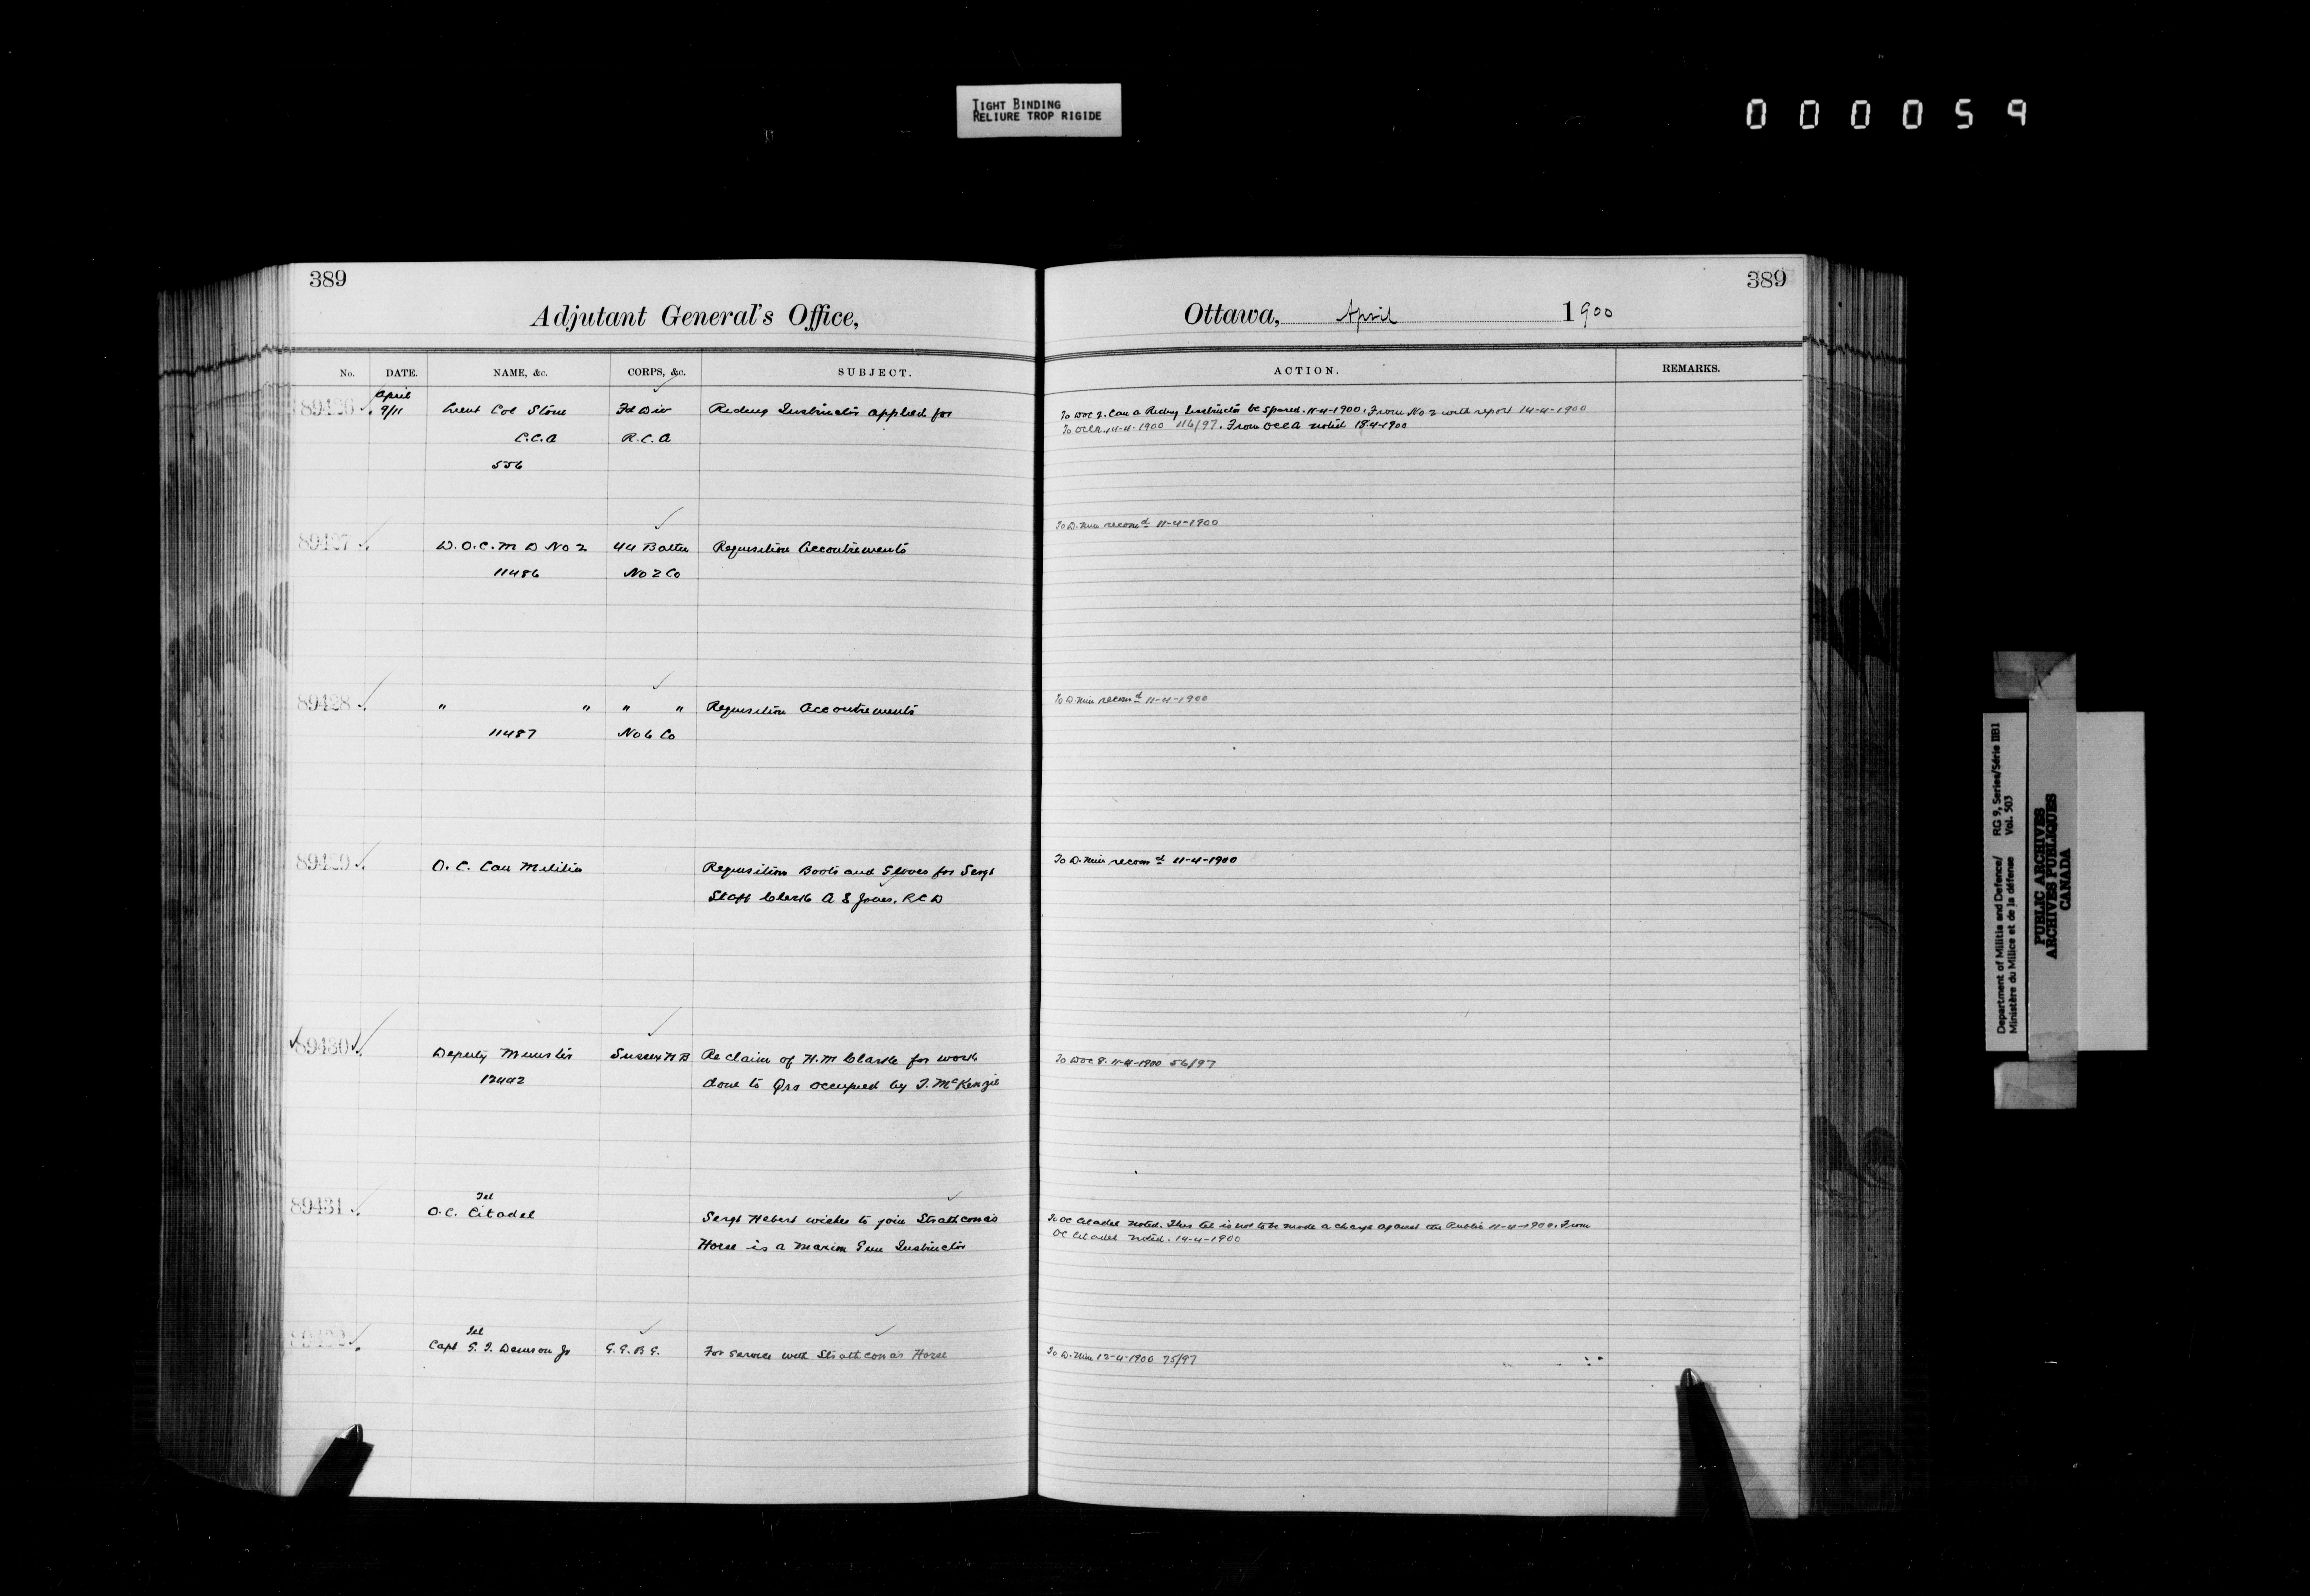 TIGHT BINDING
RELIURE TROP RIGIDE
000059
389
Adjutant General's Office,
No. DATE. NAME, &c. CORPS, &c. SUBJECT.
April
89426 9/11 Lieut Col Stone Fd Div Riding Instructor applied for
C.C.A R.C.A
556
89427 D.O.C. M D No 2 44 Battn Requisition Accoutrements
11486 No 2 Co
89428 " " " " Requisition Accoutrements
11487 No 6 Co
89429 O.C. Can Militia Requisition Boots and Gloves for Sergt
Staff Clerk A E Jones. RCD
89430 Deputy Minister Sussex N B Re claim of H.M Clark for work
12442 done to Qrs occupied by J. McKenzie
Tel
89431 O.C. Citadel Sergt Hebert wishes to join Strathcona's
Horse is a Maxim Gun Instructor
Tel
89432 Capt G. T. Denison Jr G.G.B.G. For service with Strathcona's Horse
389
Ottawa, April 1900
ACTION. REMARKS.
To DOC 2. Can a Riding Instructor be spared. 11-4-1900. From No 2 with report 14-4-1900
To OCCA. 14-4-1900 116/97. From OCCA noted 18-4-1900
To D. Min recomd 11-4-1900
To D. Min recomd 11-4-1900
To D. Min recomd 11-4-1900
To DOC 8. 11-4-1900 56/97
To OC Citadel noted. This tel is not to be made a charge against the Public 11-4-1900. From
OC Citadel noted. 14-4-1900
To D. Min 12-4-1900 75/97
Department of Militia and Defence/ RG 9, Series/Série IIB1
Ministère du Milice et de la défense Vol. 503
PUBLIC ARCHIVES
ARCHIVES PUBLIQUES
CANADA